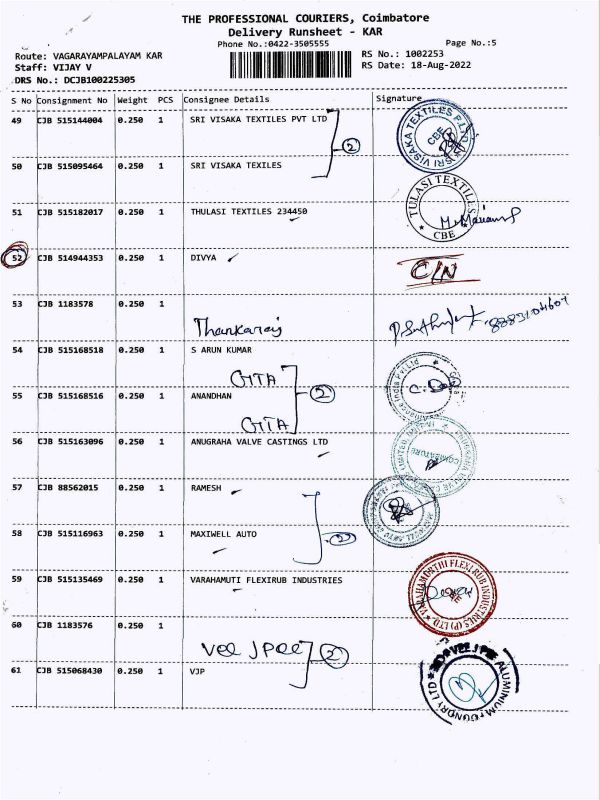 THE PROFESSIONAL COURIERS, Coimbatore
Delivery Runsheet - KAR
Phone No.:0422-3505555 Page No.:5
Route: VAGARAYAMPALAYAM KAR RS No.: 1002253
Staff: VIJAY V RS Date: 18-Aug-2022
DRS No.: DCJB100225305
S No Consignment No Weight PCS Consignee Details Signature
49 CJB 515144004 0.250 1 SRI VISAKA TEXTILES PVT LTD
2
SRI VISAKA TEXTILES P LTD CBE
50 CJB 515095464 0.250 1 SRI VISAKA TEXILES
51 CJB 515182017 0.250 1 THULASI TEXTILES 234450
TULASI TEXTILES * CBE *
52 CJB 514944353 0.250 1 DIVYA C/N
53 CJB 1183578 0.250 1
Thankaraj
54 CJB 515168518 0.250 1 S ARUN KUMAR
GTA
2
55 CJB 515168516 0.250 1 ANANDHAN
GTA
56 CJB 515163096 0.250 1 ANUGRAHA VALVE CASTINGS LTD
COIMBATORE
57 CJB 88562015 0.250 1 RAMESH
2
58 CJB 515116963 0.250 1 MAXIWELL AUTO
59 CJB 515135469 0.250 1 VARAHAMUTI FLEXIRUB INDUSTRIES
VARAHAMOORTHI FLEXI RUB INDUSTRIES (P) LTD
60 CJB 1183576 0.250 1
VEE JPEE 2
61 CJB 515068430 0.250 1 VJP
VEE JPEE ALUMINIUM FOUNDRY LTD